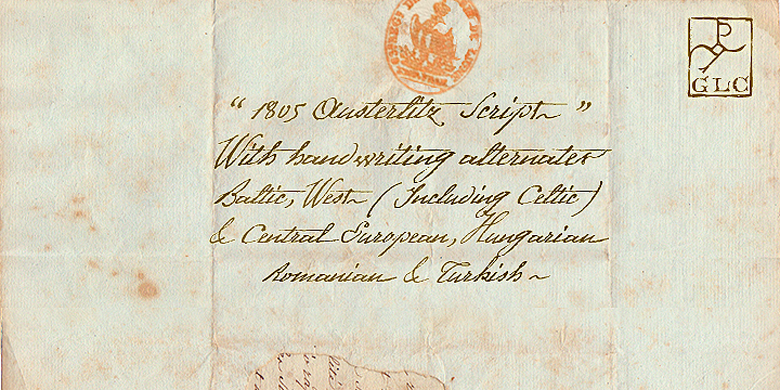 GLC
“ 1805 Austerlitz Script ”
With handwriting alternates
Baltic, West (Including Celtic)
& Central European, Hungarian
Romanian & Turkish